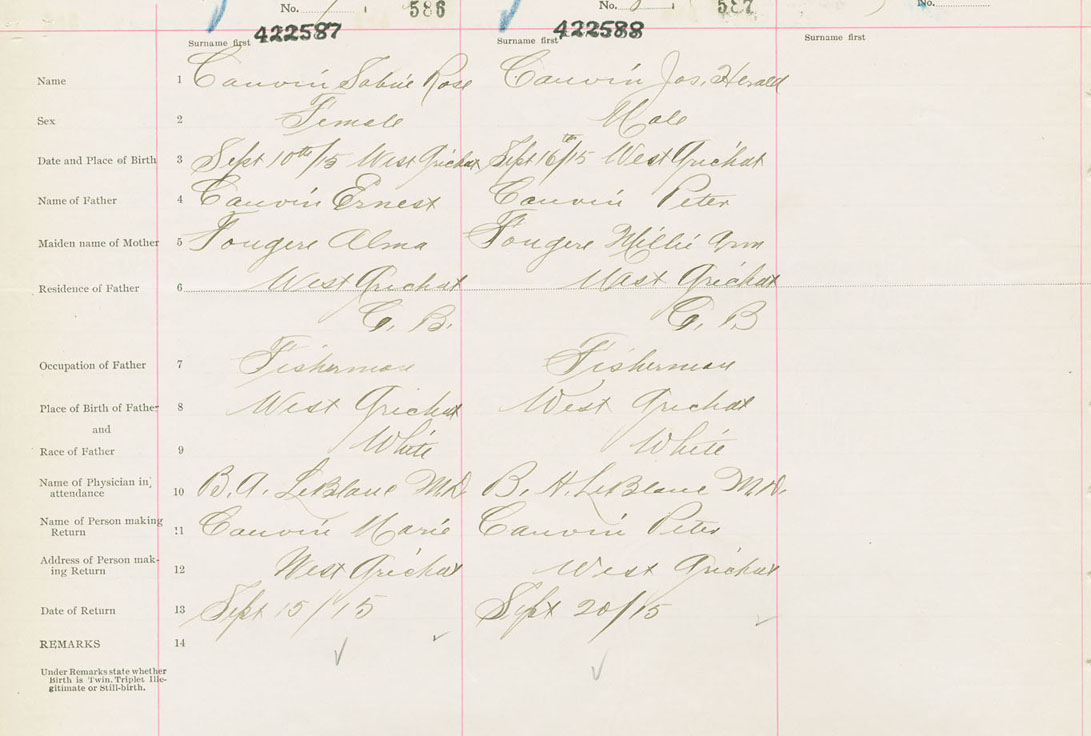 No. 586 No. 587 No.
422587 422588
Surname first Surname first Surname first
Name 1 Cauvin Sabie Rose Cauvin Jos. Herald
Sex 2 Female Male
Date and Place of Birth 3 Sept 10th/15 West Arichat Sept 16th/15 West Arichat
Name of Father 4 Cauvin Ernest Cauvin Peter
Maiden name of Mother 5 Fougere Alma Fougere Millie Ann
Residence of Father 6 West Arichat West Arichat
C. B. C. B
Occupation of Father 7 Fisherman Fisherman
Place of Birth of Father 8 West Arichat West Arichat
and
Race of Father 9 White White
Name of Physician in
attendance 10 B. A. LeBlanc M.D. B. A. LeBlanc M.D.
Name of Person making
Return 11 Cauvin Marie Cauvin Peter
Address of Person mak-
ing Return 12 West Arichat West Arichat
Date of Return 13 Sept 15/15 Sept 20/15
REMARKS 14
Under Remarks state whether
Birth is Twin. Triplet Ille-
gitimate or Still-birth.